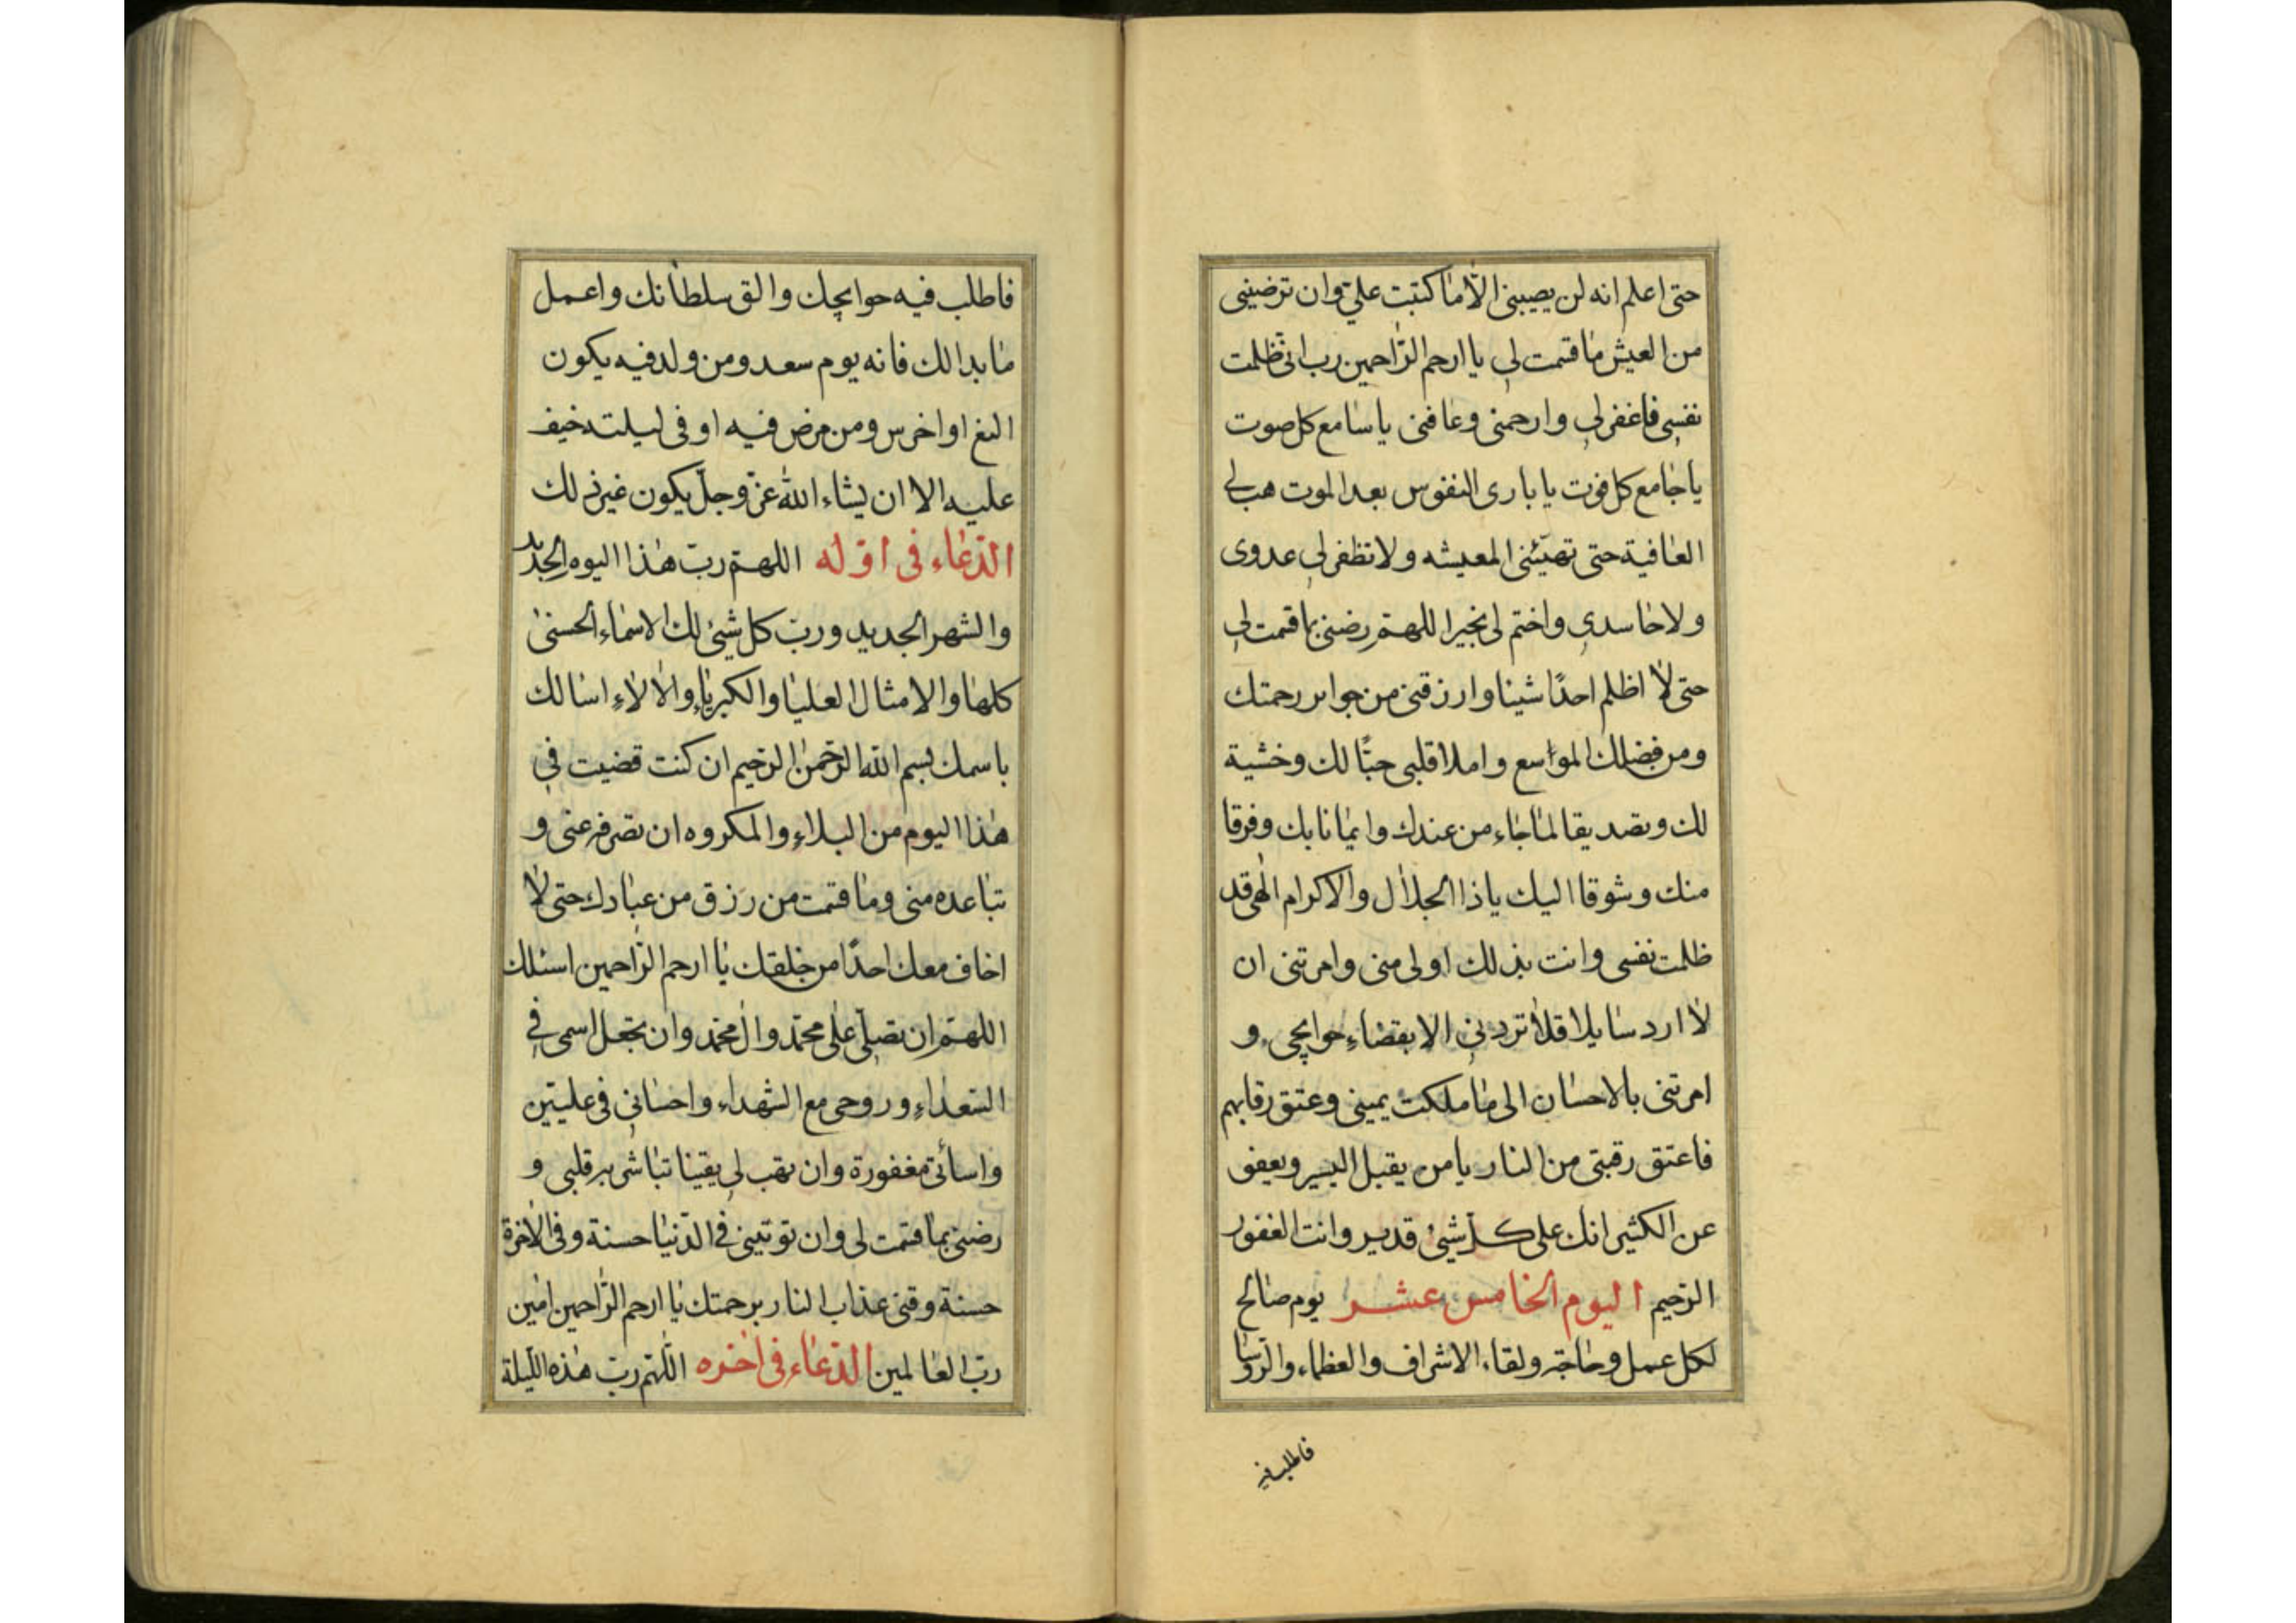 حتى اعلم انه لن يصيبنى الّا ما كتبت علىّ وان ترضينى
من العيش ما قسمت لى يا ارحم الرّاحمين رب انى ظلمت
نفسى فاغفر لى وارحمنى وعافنى يا سامع كل صوت
يا جامع كل فوت يا بارى النفوس بعد الموت هب لى
العافية حتى تهنّئنى المعيشه ولا تظفر لى عدوى
ولا حاسدى واختم لى بخير اللهمّ رضنى بما قسمت لى
حتى لا اظلم احدًا شيئا وارزقنى من رحمتك
ومن فضلك الواسع واملا قلبى حبًّا لك وخشية
لك وتصديقا لما جاء من عندك وايمانا بك وفرقا
منك وشوقا اليك يا ذا الجلال والاكرام الهى قد
ظلمت نفسى وانت بذلك اولى منى وامرتنى ان
لا ارد سايلا فلا تردنى الا بقضاء حوايجى و
امرتنى بالاحسان الى ما ملكت يمينى وعتق رقابهم
فاعتق رقبتى من النار يا من يقبل اليسير ويعفو
عن الكثير انك على كلّ شئ قدير وانت الغفور
الرّحيم اليوم الخامس عشر يوم صالح
لكل عمل وحاجة ولقاء الاشراف والعظماء والرّوسا
فاطلب فيه
فاطلب فيه حوايجك والق سلطانك واعمل
ما بدا لك فانه يوم سعد ومن ولد فيه يكون
الثغ او اخرس ومن مرض فيه او فى ليلته خيف
عليه الا ان يشاء الله عزّ وجلّ يكون غير ذلك
الدّعاء فى اوّله اللهمّ ربّ هذا اليوم الجديد
والشهر الجديد وربّ كل شئ لك الاسماء الحسنى
كلها والامثال العليا والكبرياء والالاء اسالك
باسمك بسم الله الرّحمن الرّحيم ان كنت قضيت فى
هذا اليوم من البلاء والمكروه ان تصرفه عنى و
تباعده منى وما قسمت من رزق من عبادك حتى لا
اخاف معك احدًا من خلقك يا ارحم الرّاحمين اسئلك
اللهمّ ان تصلّى على محمّد وال محمّد وان تجعل اسمى فى
السّعداء وروحى مع الشّهداء واحسانى فى علّيّين
واسائتى مغفورة وان تهب لى يقينا تباشر به قلبى و
رضنى بما قسمت لى وان توتينى فى الدّنيا حسنة وفى الاخرة
حسنة وقنى عذاب النار برحمتك يا ارحم الرّاحمين امين
ربّ العالمين الدّعاء فى اخره اللّهمّ ربّ هذه اللّيلة